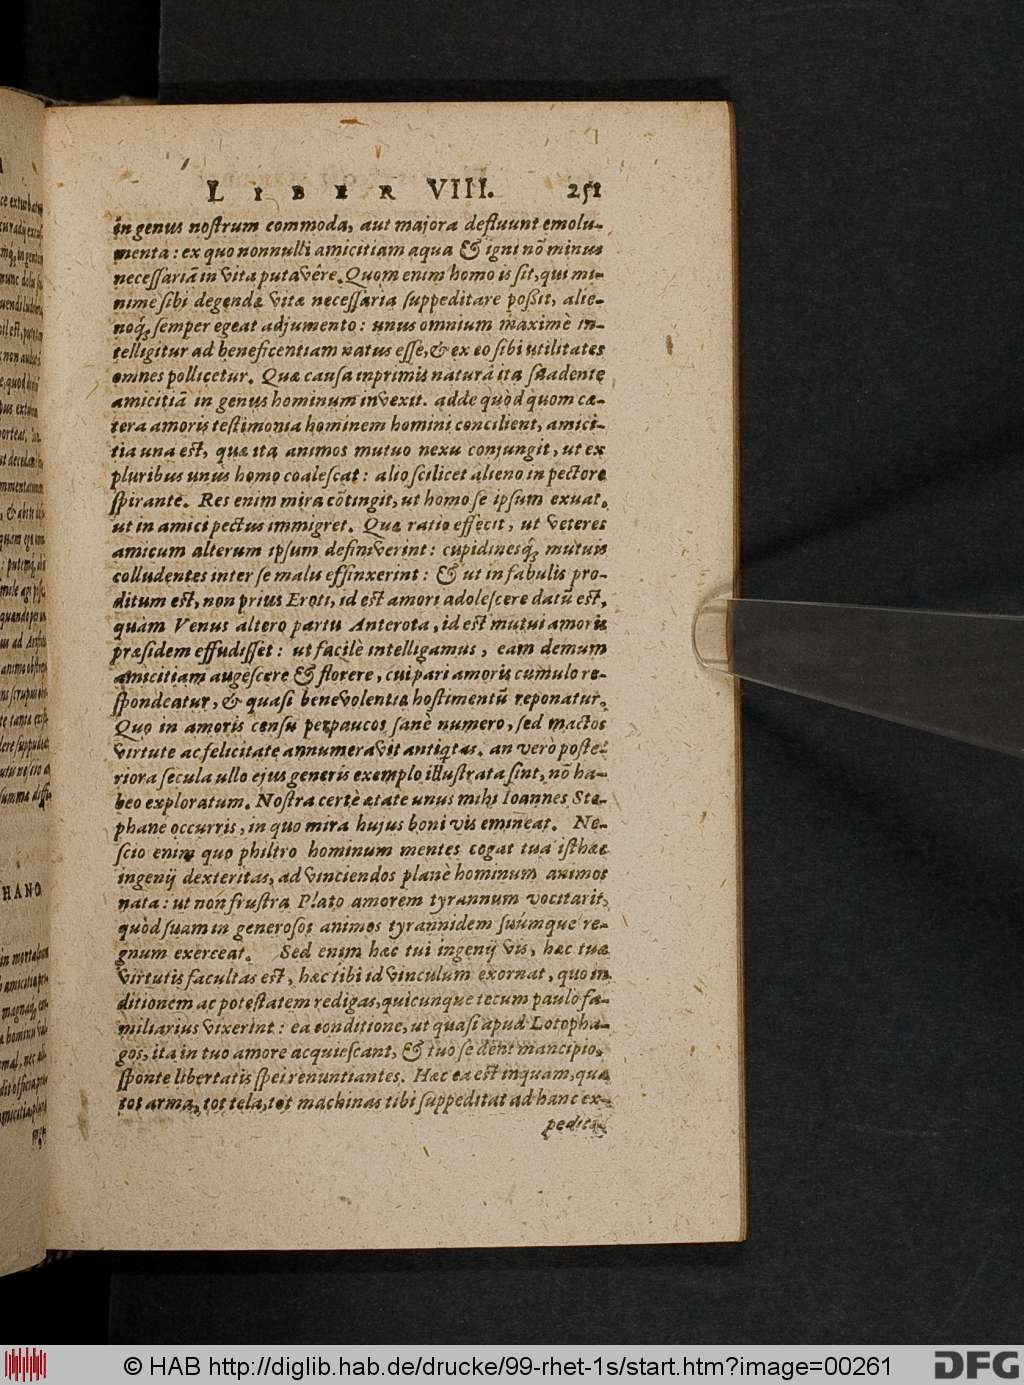 LIBER VIII. 251
in genus nostrum commoda, aut majora defluunt emolu-
menta: ex quo nonnulli amicitiam aqua & igni nō minus
necessariā in vita putavêre. Quom enim homo is sit, qui mi-
nimè sibi degendæ vitæ necessaria suppeditare poßit, alie-
noq́; semper egeat adjumento: unus omnium maximè in-
telligitur ad beneficentiam natus esse, & ex eo sibi utilitates
omnes pollicetur. Quæ causa inprimis naturâ ita suadente
amicitiā in genus hominum invexit. adde quòd quom cæ-
tera amoris testimonia hominem homini concilient, amici-
tia una est, quæ ita animos mutuo nexu conjungit, ut ex
pluribus unus homo coalescat: alio scilicet alieno in pectore
spirante. Res enim mira cōtingit, ut homo se ipsum exuat,
ut in amici pectus immigret. Quæ ratio effecit, ut veteres
amicum alterum ipsum definiverint: cupidinesq́; mutuis
colludentes inter se malis effinxerint: & ut in fabulis pro-
ditum est, non prius Eroti, id est amori adolescere datū est,
quàm Venus altero partu Anterota, id est mutui amoris
præsidem effudisset: ut facilè intelligamus, eam demum
amicitiam augescere & florere, cui pari amoris cumulo re-
spondeatur, & quasi benevolentiæ hostimentū reponatur.
Quo in amoris censu perpaucos sanè numero, sed mactos
virtute ac felicitate annumeravit antiqtas. an verò poste-
riora secula ullo ejus generis exemplo illustrata sint, nō ha-
beo exploratum. Nostra certè ætate unus mihi Ioannes Ste-
phane occurris, in quo mira hujus boni vis emineat. Ne-
scio enim quo philtro hominum mentes cogat tua isthæc
ingenij dexteritas, ad vinciendos planè hominum animos
nata: ut non frustra Plato amorem tyrannum vocitarit,
quòd suam in generosos animos tyrannidem suúmque re-
gnum exerceat. Sed enim hæc tui ingenij vis, hæc tuæ
virtutis facultas est, hæc tibi id vinculum exornat, quo in
ditionem ac potestatem redigas, quicunque tecum paulo fa-
miliarius vixerint: ea conditione, ut quasi apud Lotopha-
gos, ita in tuo amore acquiescant, & tuo se dent mancipio,
sponte libertatis spei renuntiantes. Hæc ea est inquam, quæ
tot arma, tot tela, tot machinas tibi suppeditat ad hanc ex-
pedita
HANO
© HAB http://diglib.hab.de/drucke/99-rhet-1s/start.htm?image=00261
DFG